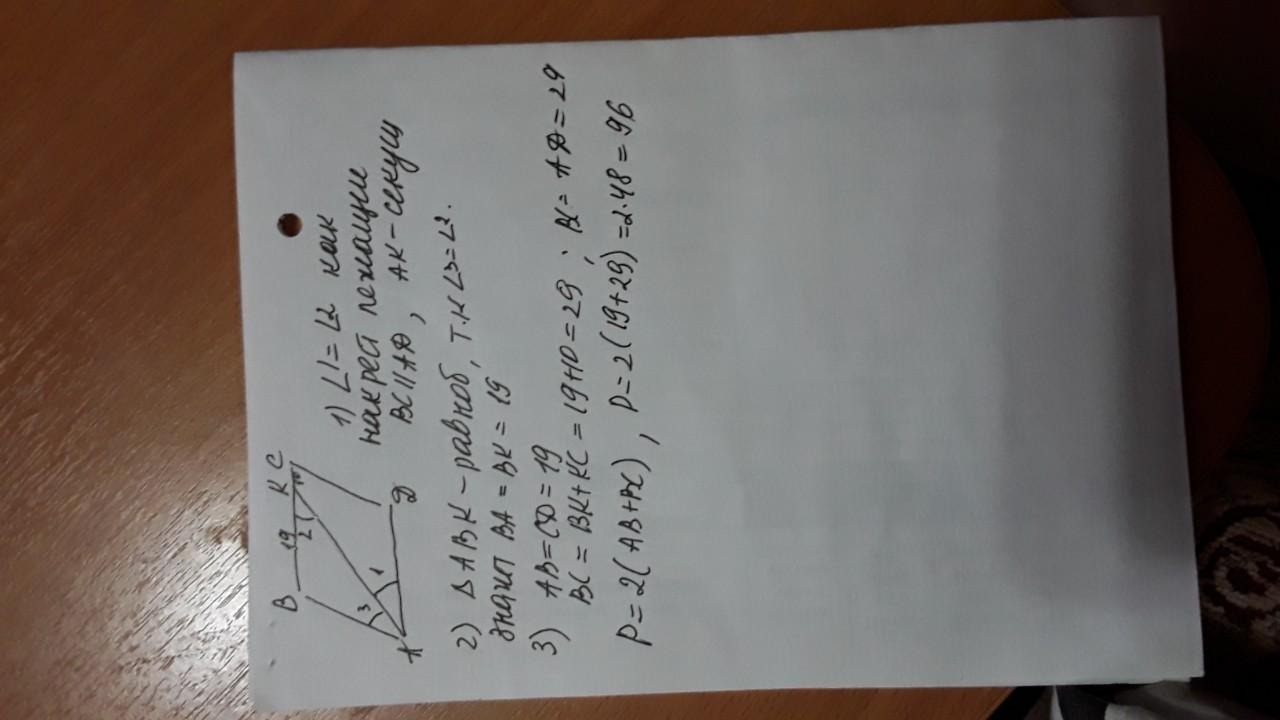 B 19 K C
2 10
3 1
A D
1) ∠1 = ∠2 как
накрест лежащие
BC || AD, AK - секущ
2) Δ ABK - равноб, т.к ∠3 = ∠2.
значит BA = BK = 19
3) AB = CD = 19
BC = BK + KC = 19 + 10 = 29; BC = AD = 29
P = 2(AB + BC), P = 2(19 + 29) = 2·48 = 96